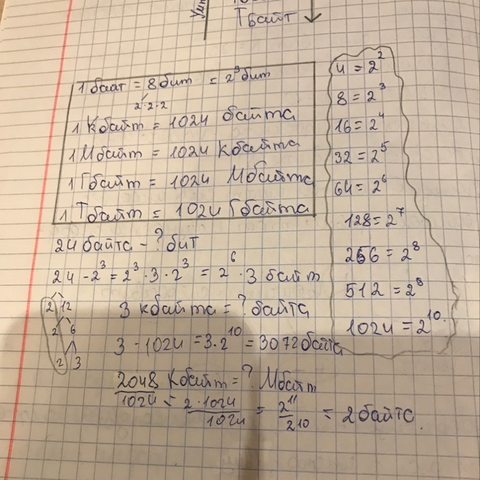 Тбайт
1 баат = 8 бит = 2³ бит
2·2·2
1 Кбайт = 1024 байта
1 Мбайт = 1024 Кбайта
1 Гбайт = 1024 Мбайта
1 Тбайт = 1024 Гбайта
4 = 2²
8 = 2³
16 = 2⁴
32 = 2⁵
64 = 2⁶
128 = 2⁷
256 = 2⁸
512 = 2⁹
1024 = 2¹⁰.
24 байта - ? бит
24 - 2³ = 2³ · 3 · 2³ = 2⁶ · 3 байт
2 12
2 6
2 3
3 кбайта = ? байта
3 - 1024 = 3 · 2¹⁰ = 3072 байта
2048 Кбайт = ? Мбайт
2048/1024 = 2·1024/1024 = 2¹¹/2¹⁰ = 2 байта.